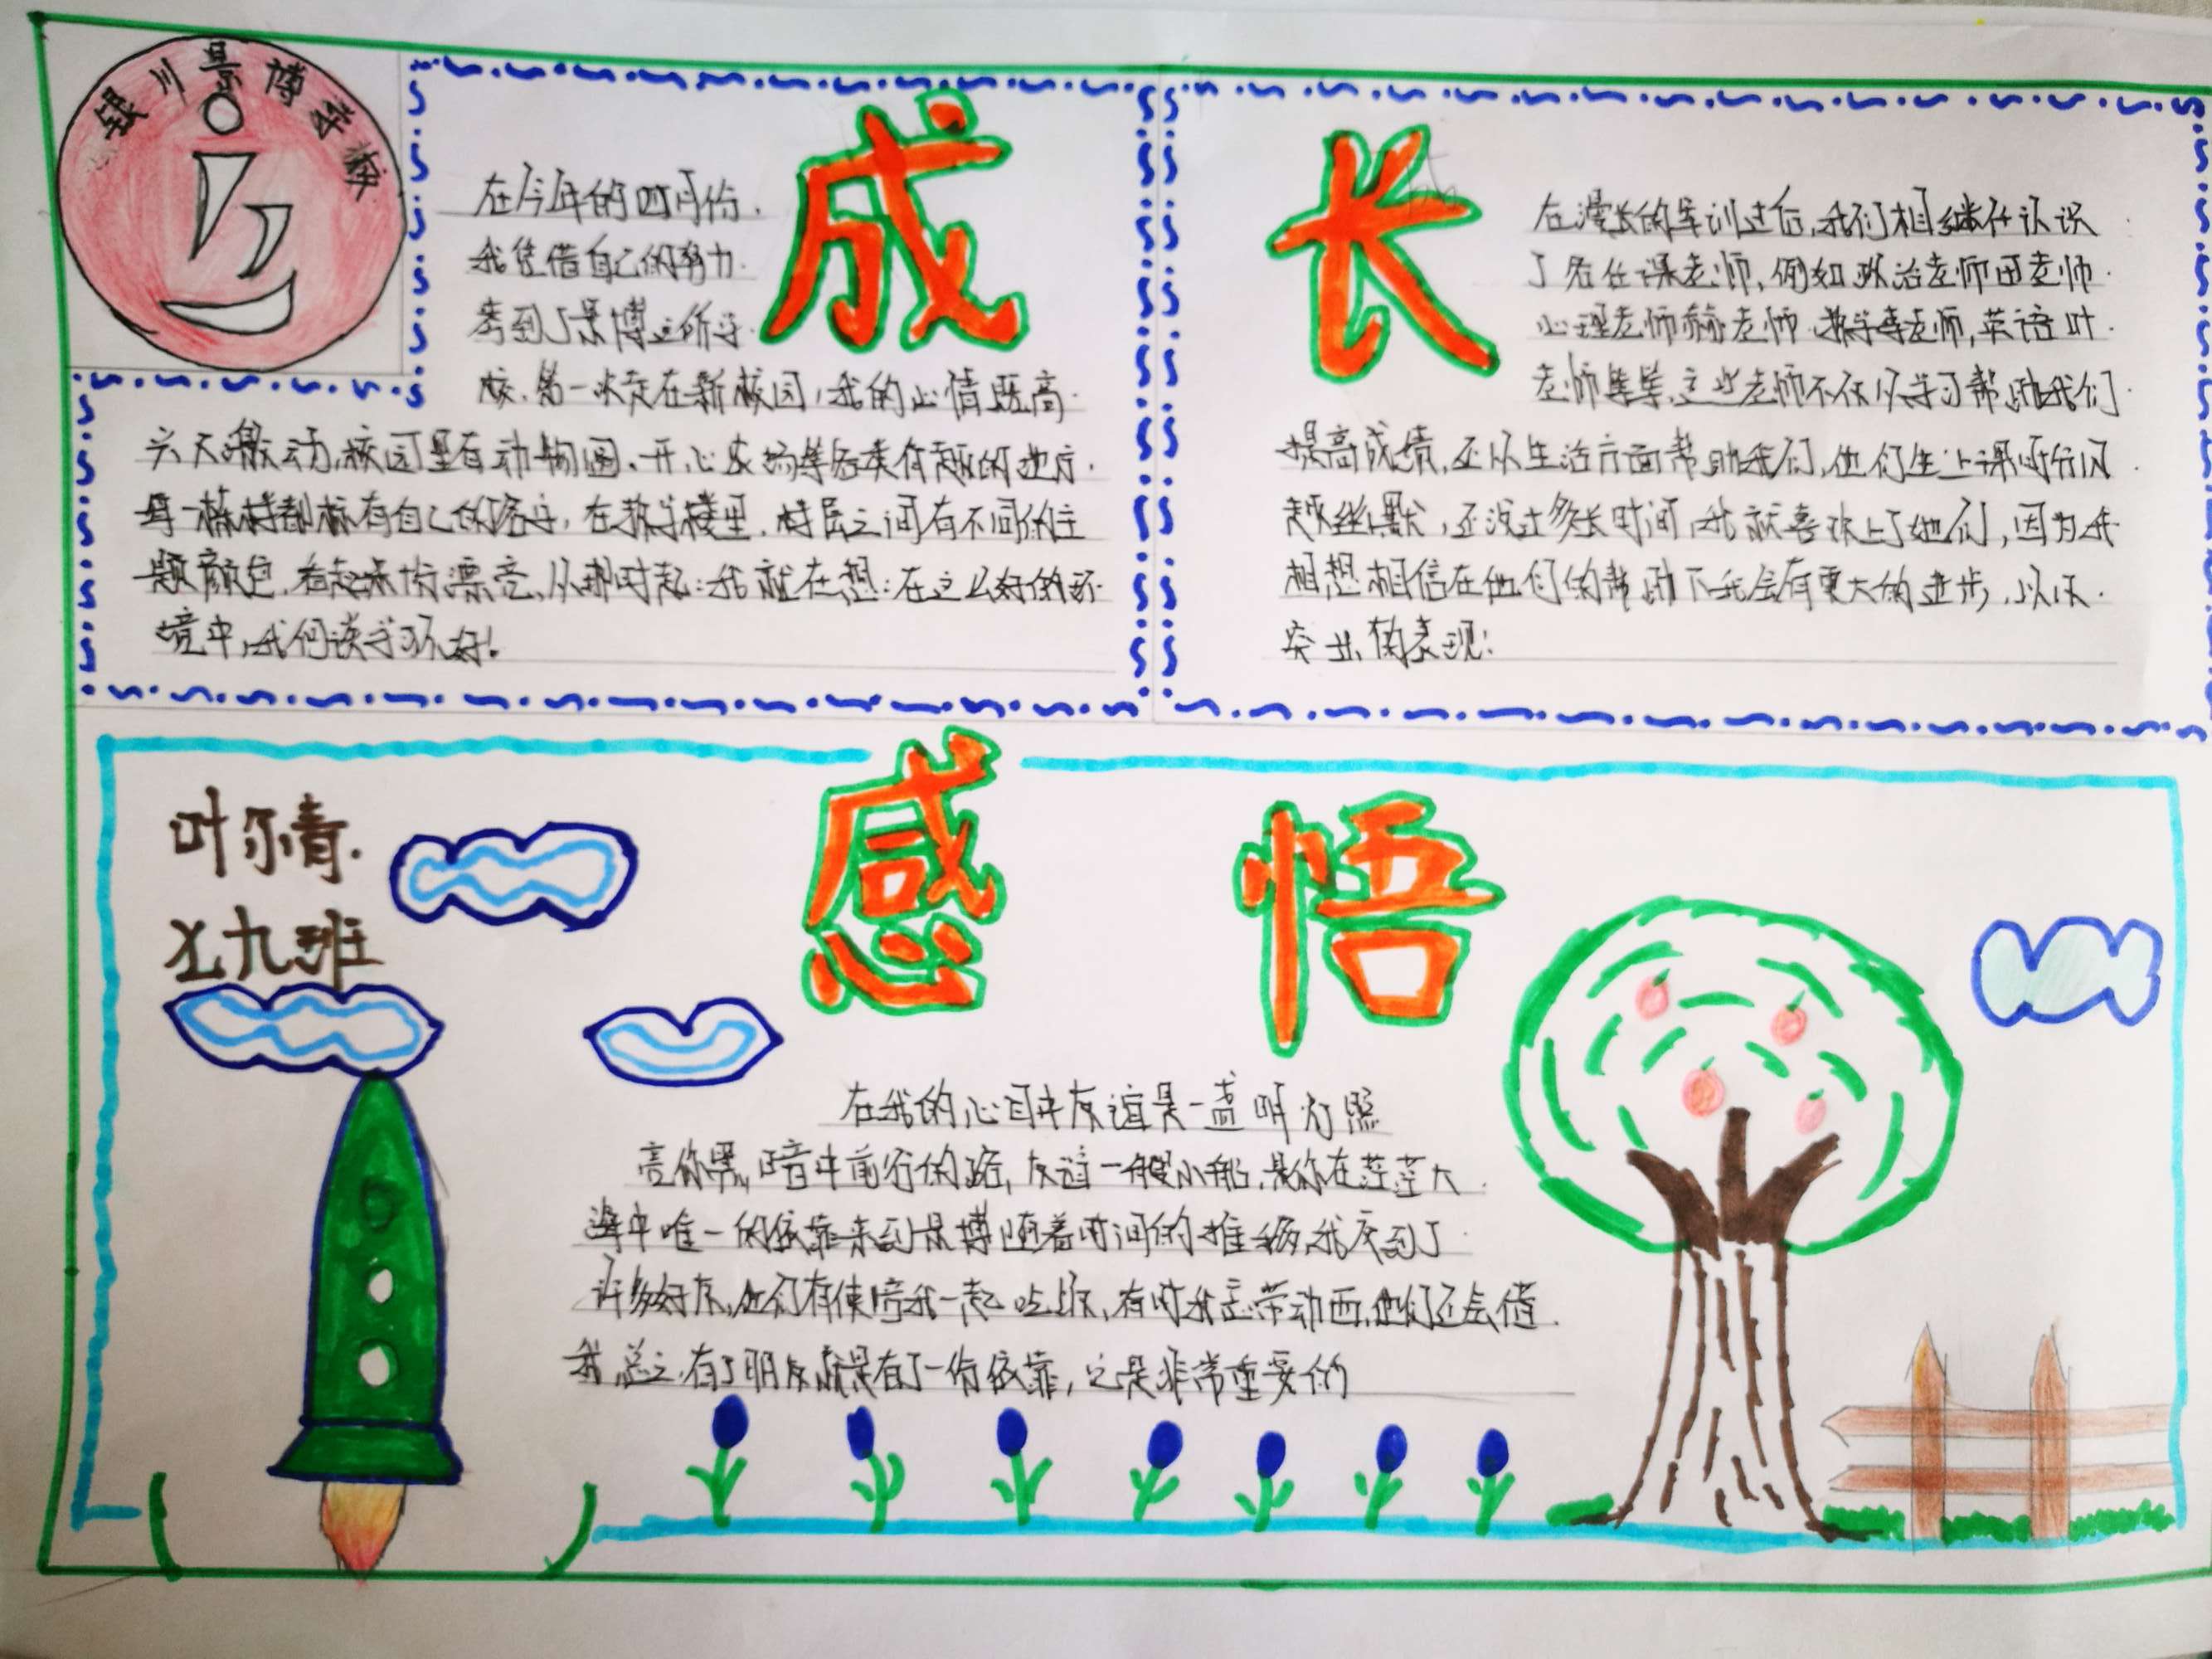 银川景博学校
成长
在今年的四月份,
我凭借自己的努力.
考到了景博这所学
校,第一次走在新校园,我的心情既高
兴又激动,校园里有动物园、开心农场等各类有趣的地方.
每一栋楼都标有自己的名字,在教学楼里,楼层之间有不同的主
题颜色,看起来十分漂亮、从那时起:我就在想:在这么好的环
境中,我何谈学习不好!
在漫长的军训过后,我们相继在认识
了各任课老师,例如政治老师田老师
心理老师赫老师,数学李老师,英语叶
老师等等,这些老师不仅从学习帮助我们
提高成绩,还从生活方面帮助我们,他们生上课时分风
趣幽默,还没过多长时间,我就喜欢上了她们,因为我
相想相信在他们的帮助下我会有更大的进步,以以
突出的表现!
感悟
叶尔青.
七九班
在我的心目中友谊是一盏明灯照
亮你黑暗中前行的路,友谊一艘小船,是你在茫茫大
海中唯一的依靠来到景博随着时间的推移,我交到了
许多好友,他们有使陪我一起吃饭,有时我忘带动西,他们还会借
我,总之,有了朋友就是有了一份依靠,这是非常重要的